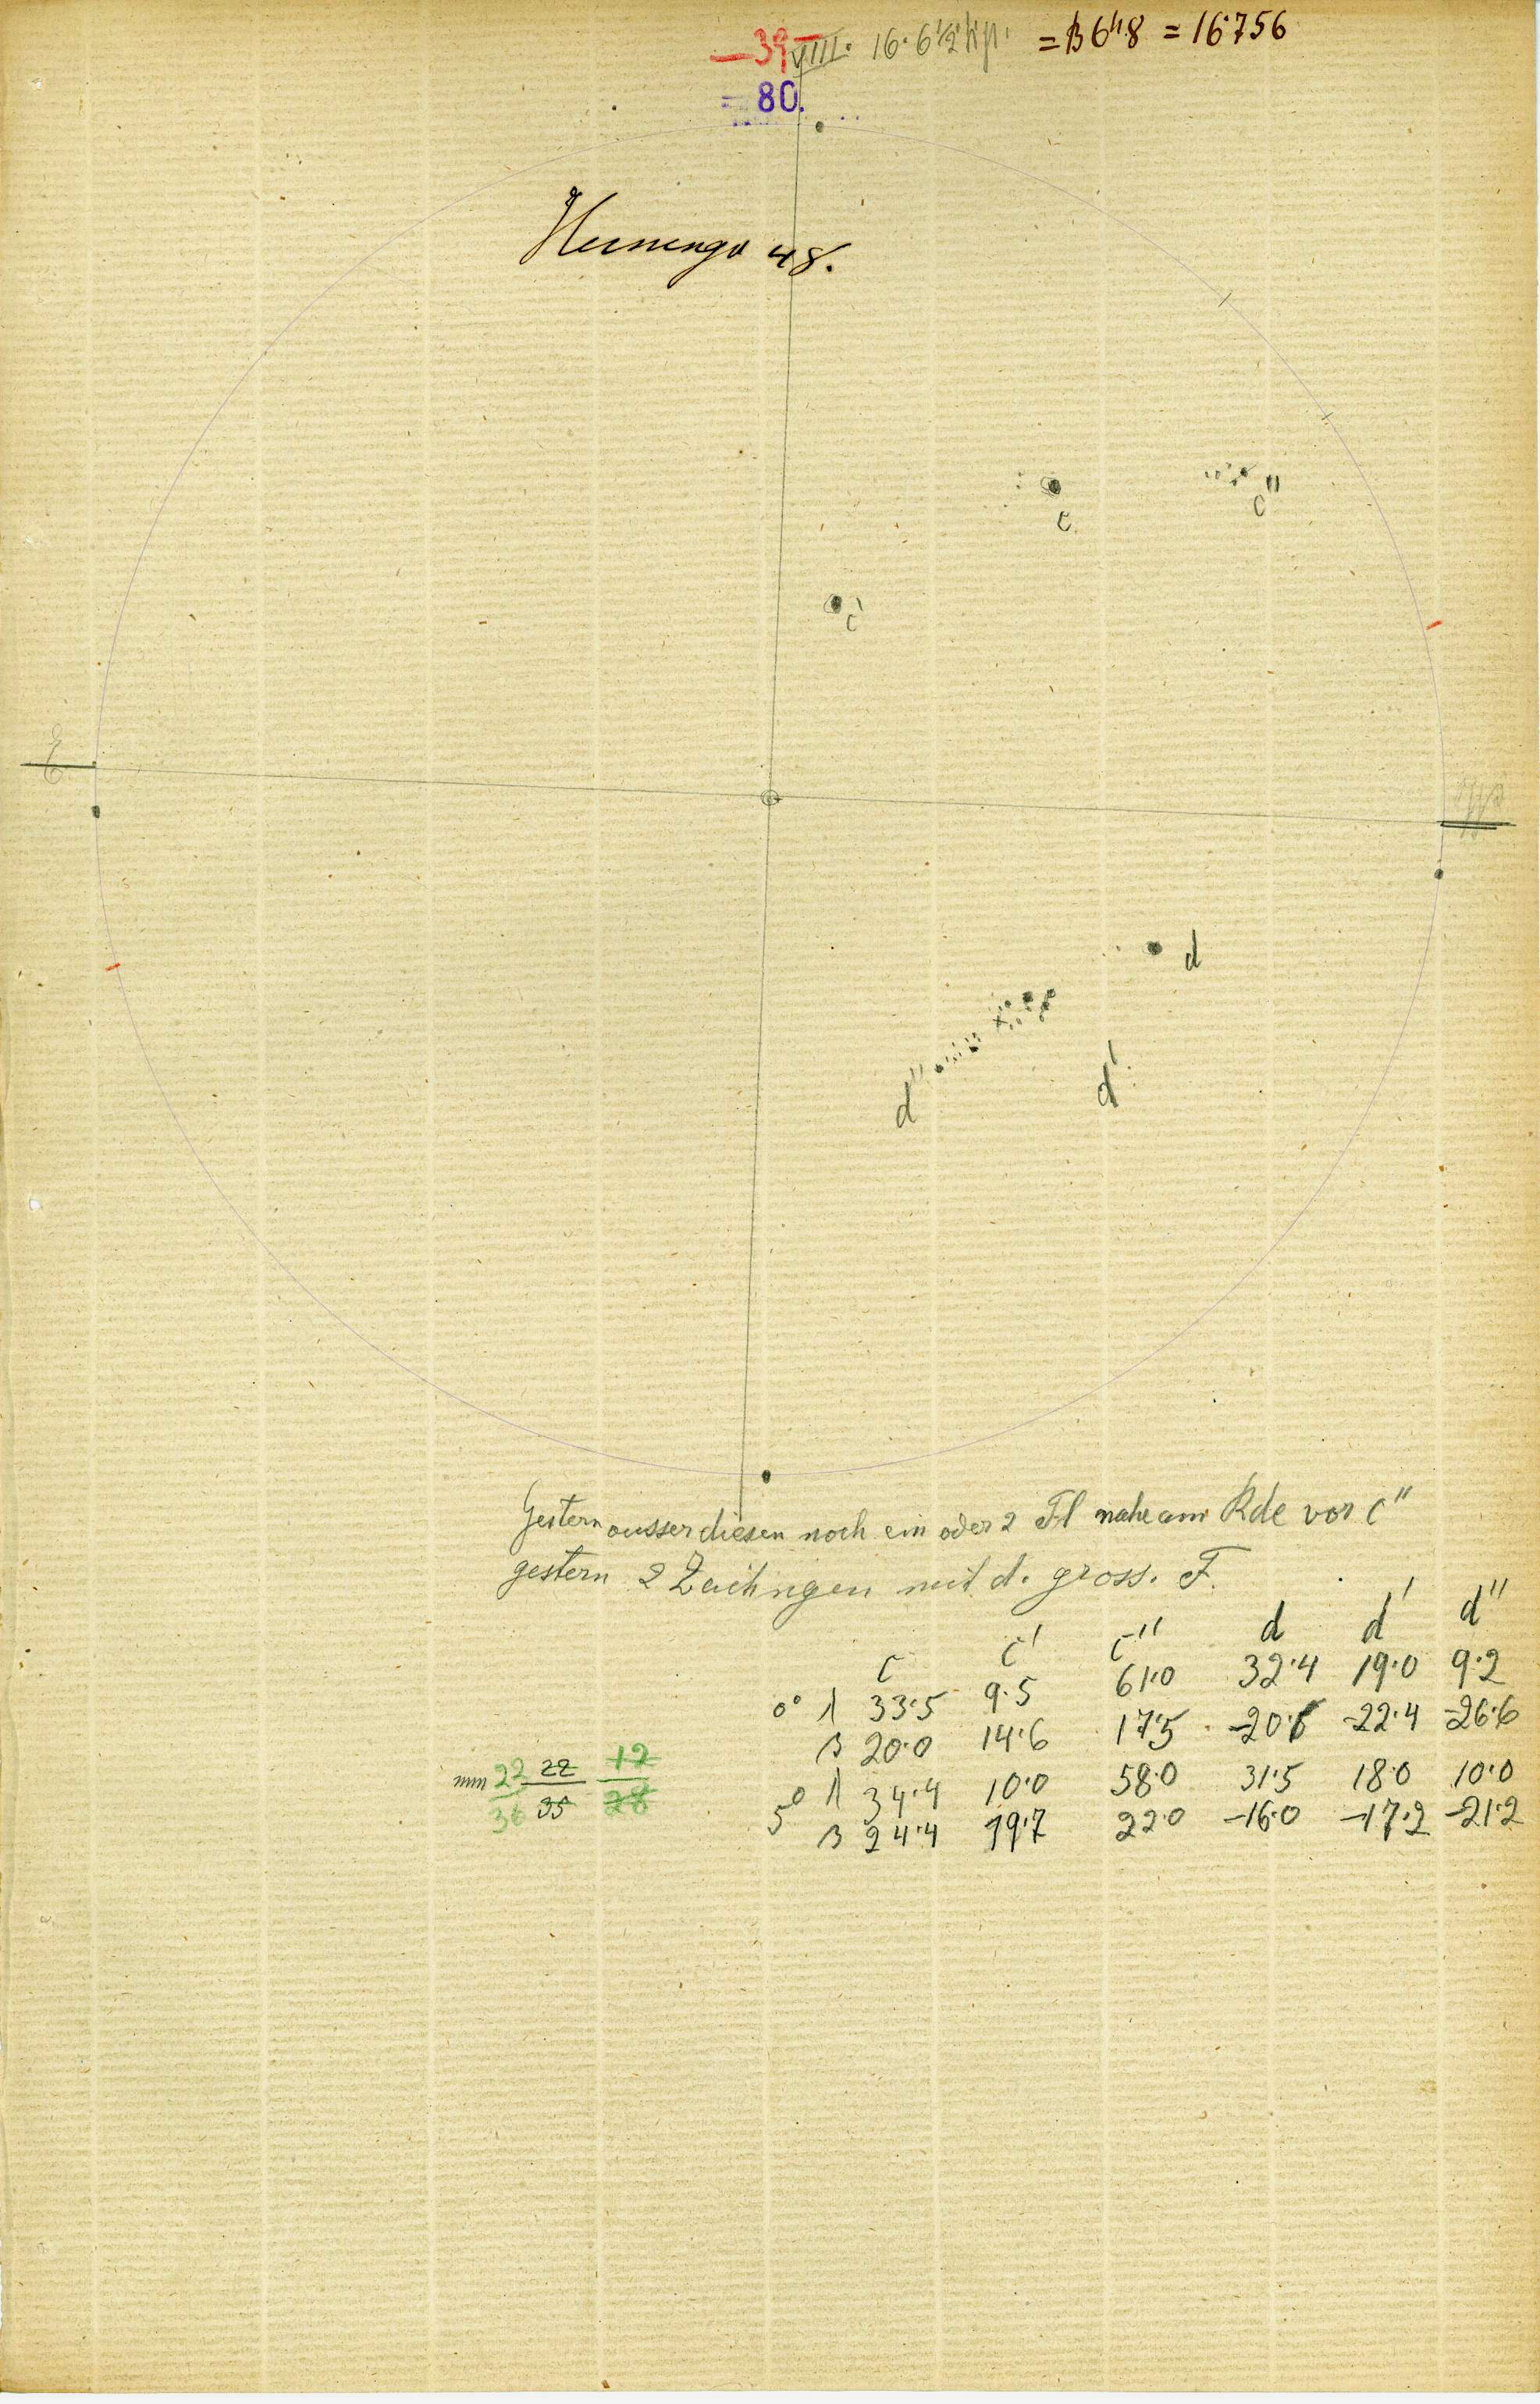 —39—
VIII. 16. 6½ = B 6h.8 = 16.756
= 80.
48.
c''
c
c'
E
W
d
d'
d''
Gestern ausser diesen noch ein oder 2 Fl nahe am Rde vor c''
gestern 2 Zeichngen mit d. gross. F.
c c' c'' d d' d''
0° λ 33.5 9.5 61.0 32.4 19.0 9.2
β 20.0 14.6 17.5 -20.5 -22.4 -26.6
5° λ 34.4 10.0 58.0 31.5 18.0 10.0
β 24.4 19.7 22.0 -16.0 -17.2 -21.2
mm 22 22 12
36 35 28